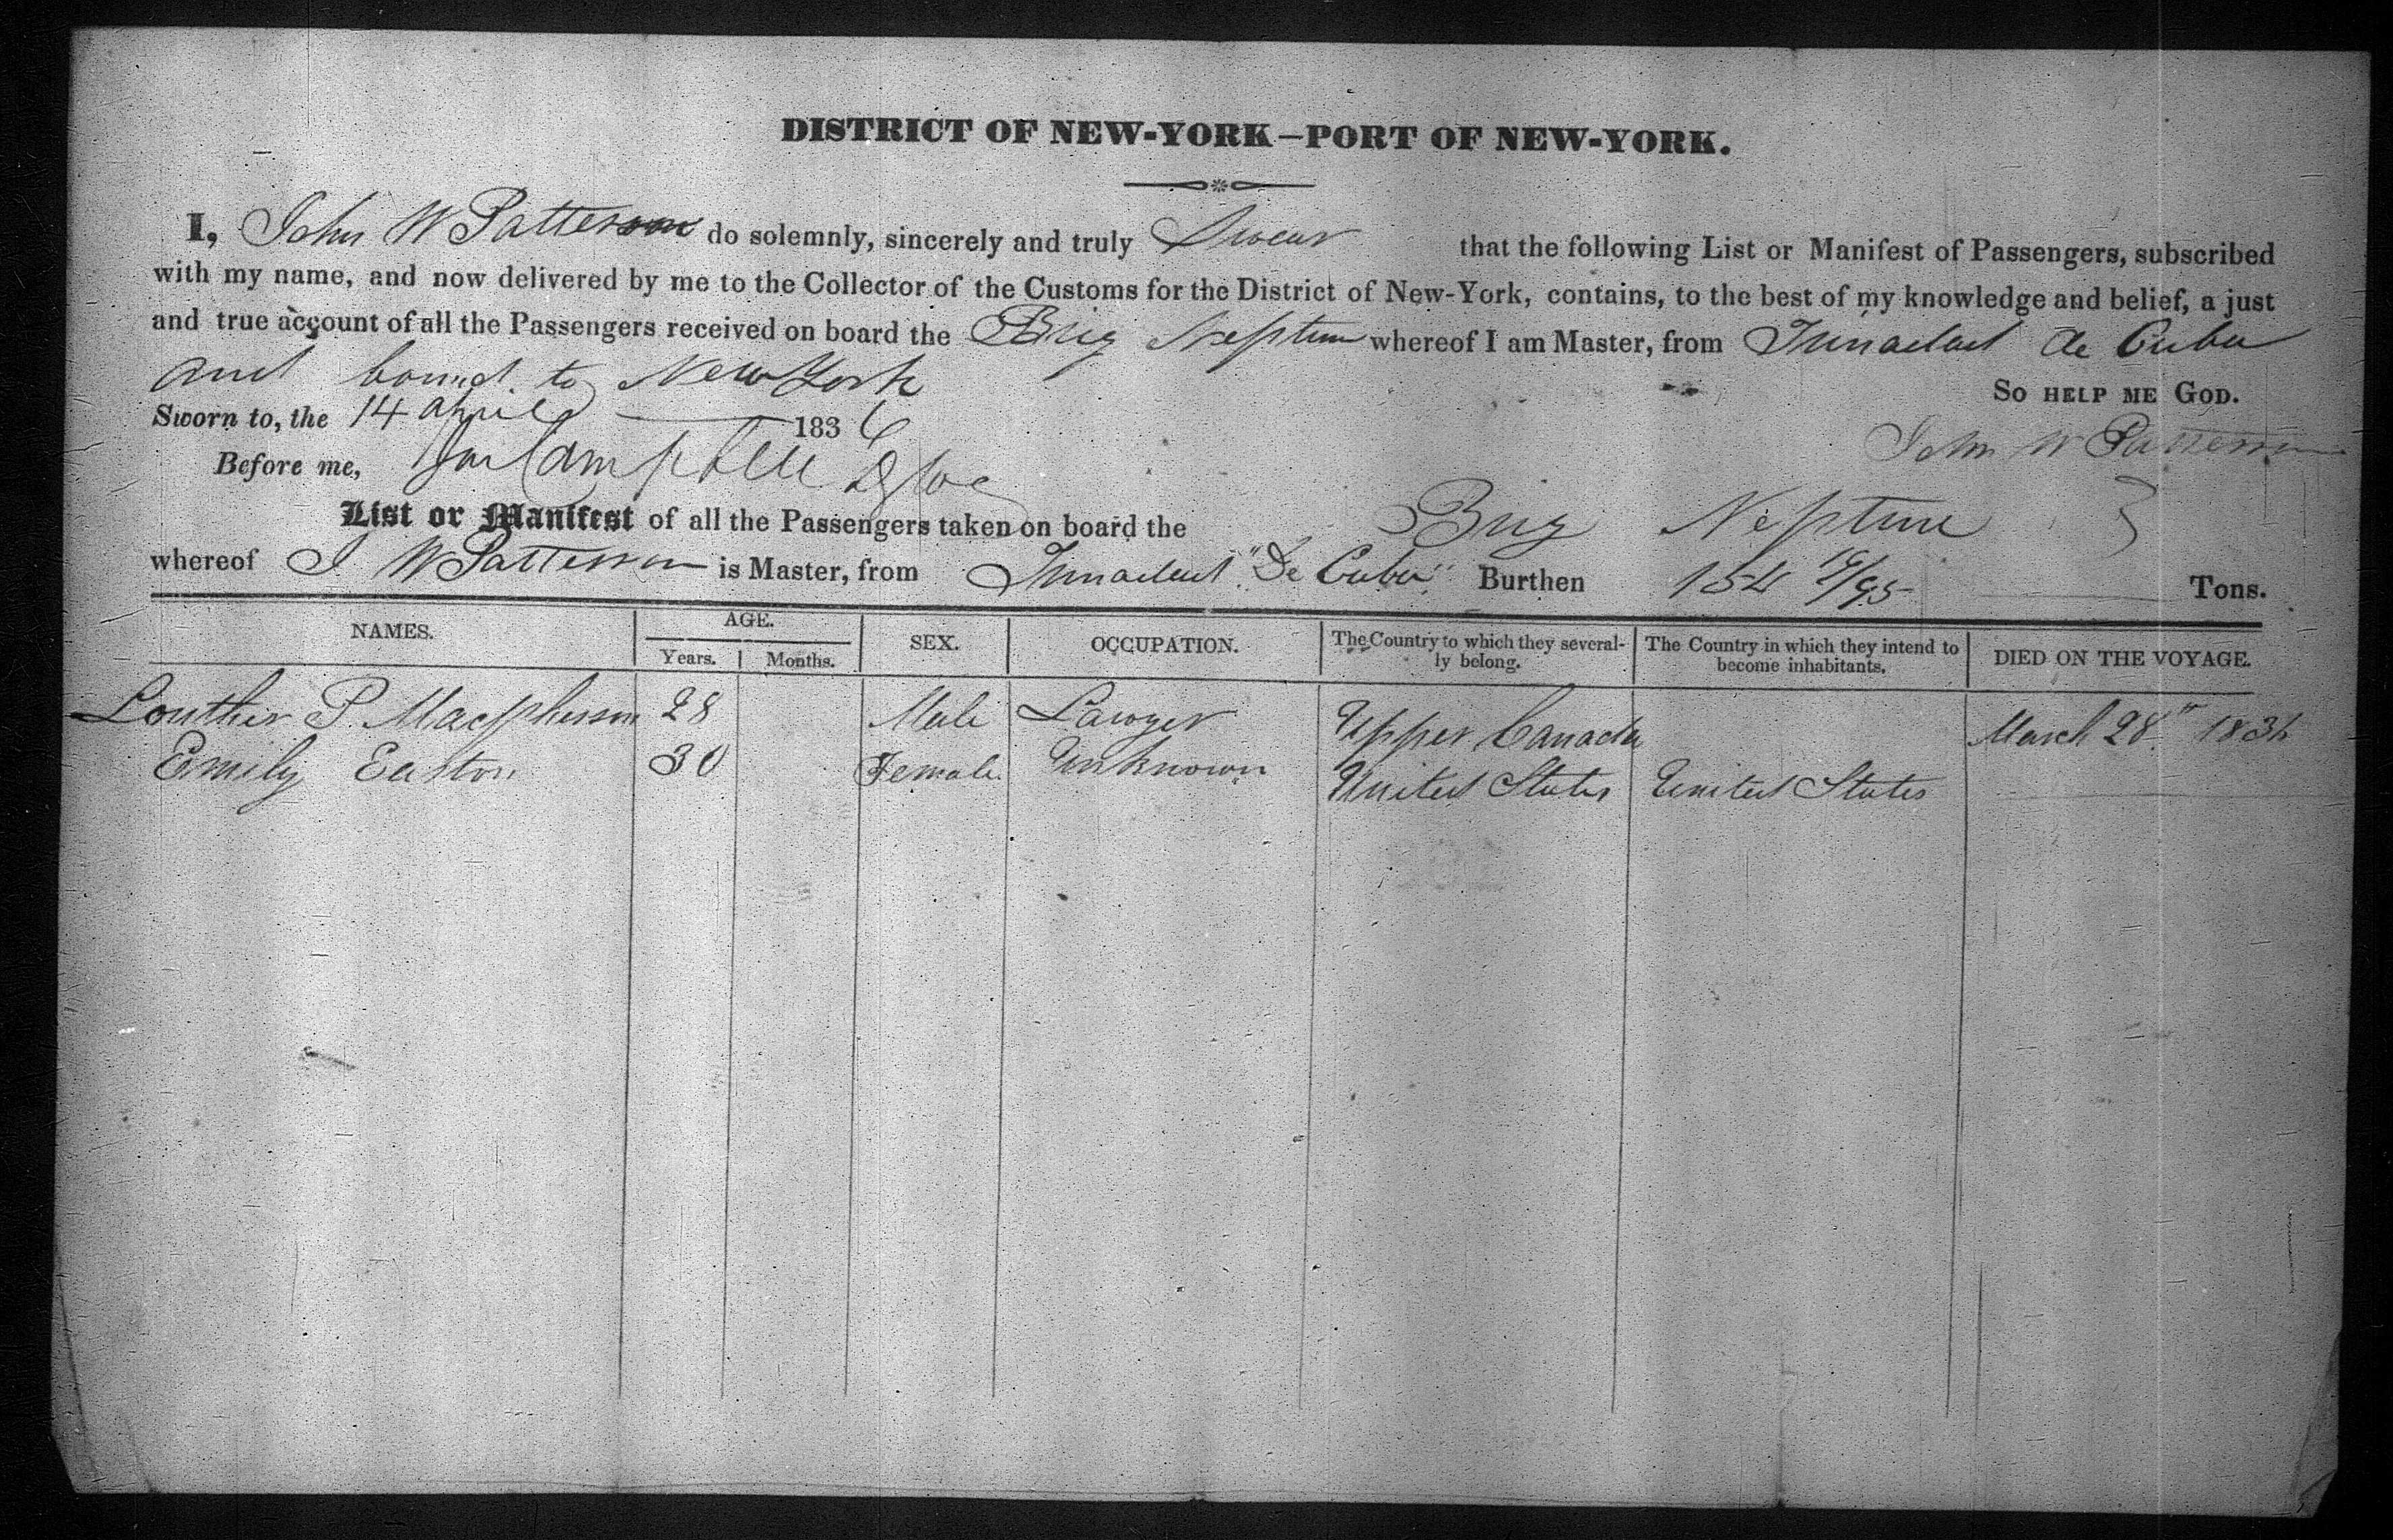 DISTRICT OF NEW-YORK—PORT OF NEW-YORK.
I, John W Patterson do solemnly, sincerely and truly Swear that the following List or Manifest of Passengers, subscribed
with my name, and now delivered by me to the Collector of the Customs for the District of New-York, contains, to the best of my knowledge and belief, a just
and true account of all the Passengers received on board the Brig Neptune whereof I am Master, from Trinadad de Cuba
and bound to New York
So HELP ME GOD.
Sworn to, the 14 April 1836
John W Patterson
Before me, Campbell
List or Manifest of all the Passengers taken on board the Brig Neptune
whereof J W Patterson is Master, from Trinadad "De Cuba" Burthen 154 /95 Tons.
NAMES. AGE. SEX. OCCUPATION. The Country to which they several-ly belong. The Country in which they intend to become inhabitants. DIED ON THE VOYAGE.
Years. Months.
Louther P. Macpherson 28 Male Lawyer Upper Canada March 28th 1836
Emily Easton 30 Female Unknown United States United States